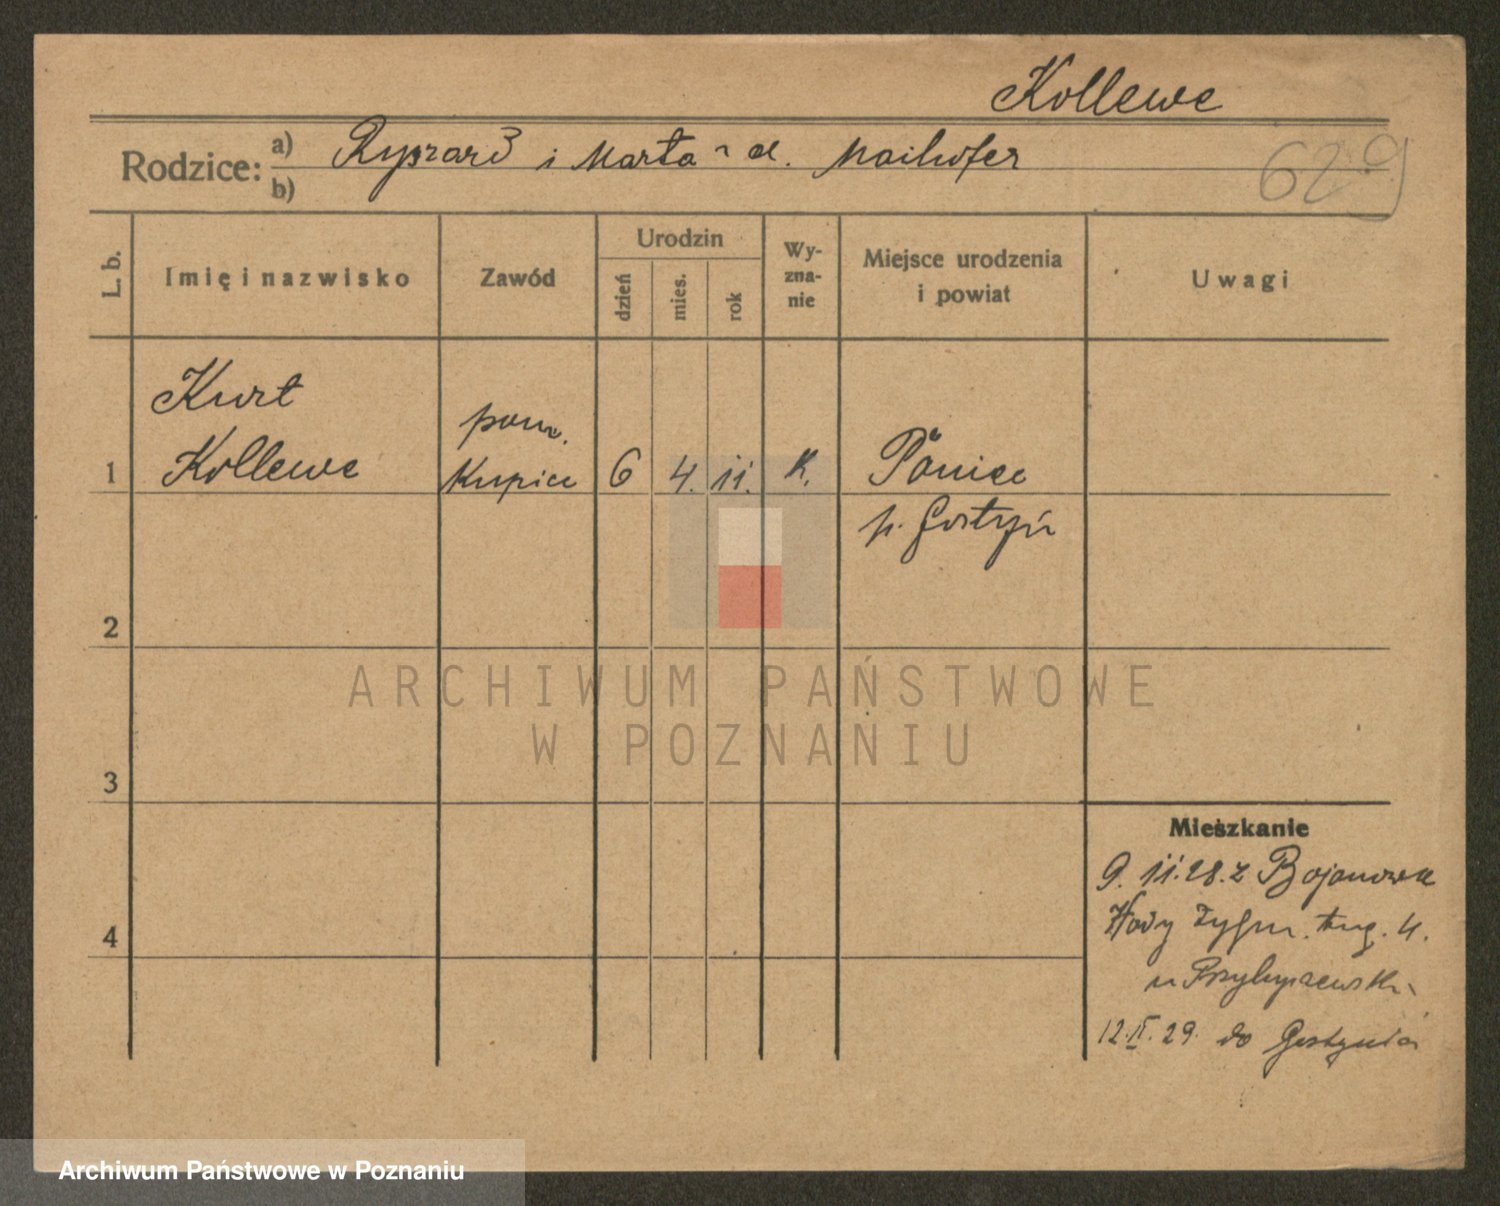 Kollewe
Rodzice: a) Ryszard i Marta z d. Maihofer
b)
629
L. b. Imię i nazwisko Zawód Urodzin dzień mies. rok Wy-zna-nie Miejsce urodzenia i powiat Uwagi
Kurt
pom.
1 Kollewe kupiec 6 4. 11. k. Poniec
p. Gostyń
2
3
4
Mieszkanie
9. 11. 28. z Bojanowa
Zygm. Aug. 4.
u Przybyszewski
12. 29. do Gostynia
ARCHIWUM PAŃSTWOWE
W POZNANIU
Archiwum Państwowe w Poznaniu